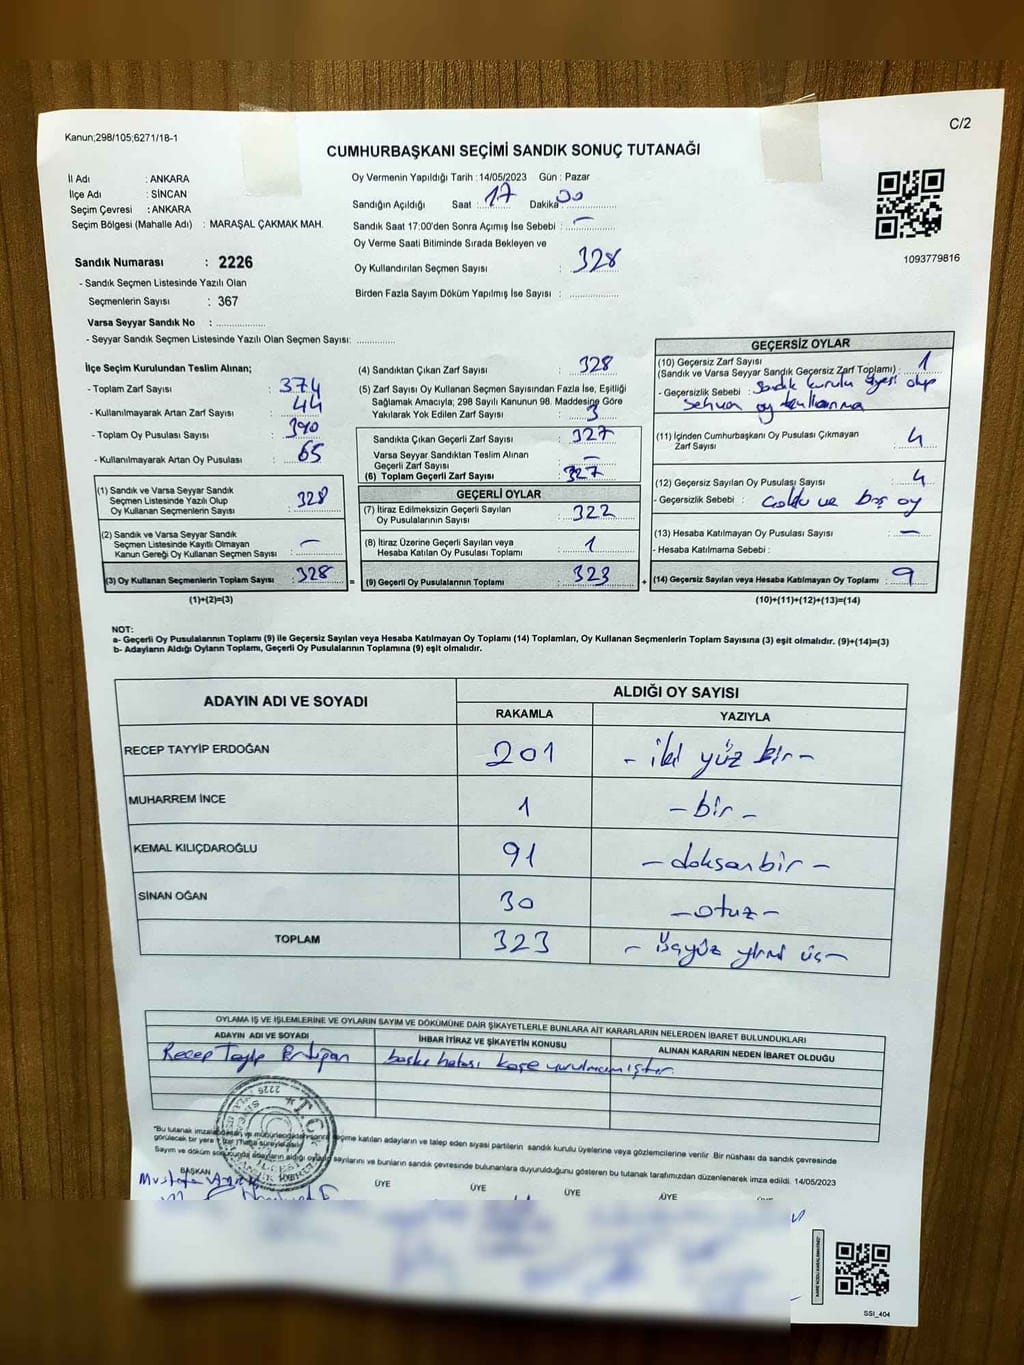 C/2
Kanun;298/105;6271/18-1
CUMHURBAŞKANI SEÇİMİ SANDIK SONUÇ TUTANAĞI
İl Adı : ANKARA
İlçe Adı : SİNCAN
Seçim Çevresi : ANKARA
Seçim Bölgesi (Mahalle Adı) : MARAŞAL ÇAKMAK MAH.
Sandık Numarası : 2226
- Sandık Seçmen Listesinde Yazılı Olan
Seçmenlerin Sayısı : 367
Varsa Seyyar Sandık No : ..................
- Seyyar Sandık Seçmen Listesinde Yazılı Olan Seçmen Sayısı: .............
Oy Vermenin Yapıldığı Tarih :14/05/2023 Gün : Pazar
Sandığın Açıldığı Saat : 17 Dakika 00
Sandık Saat 17:00'den Sonra Açımış İse Sebebi : —
Oy Verme Saati Bitiminde Sırada Bekleyen ve
Oy Kullandırılan Seçmen Sayısı : 328
Birden Fazla Sayım Döküm Yapılmış İse Sayısı : ..............
1093779816
İlçe Seçim Kurulundan Teslim Alınan;
- Toplam Zarf Sayısı : 374
- Kullanılmayarak Artan Zarf Sayısı : 44
- Toplam Oy Pusulası Sayısı : 390
- Kullanılmayarak Artan Oy Pusulası : 65
(1) Sandık ve Varsa Seyyar Sandık
Seçmen Listesinde Yazılı Olup
Oy Kullanan Seçmenlerin Sayısı : 328
(2) Sandık ve Varsa Seyyar Sandık
Seçmen Listesinde Kayıtlı Olmayan
Kanun Gereği Oy Kullanan Seçmen Sayısı : —
(3) Oy Kullanan Seçmenlerin Toplam Sayısı : 328 =
(1)+(2)=(3)
(4) Sandıktan Çıkan Zarf Sayısı : 328
(5) Zarf Sayısı Oy Kullanan Seçmen Sayısından Fazla İse, Eşitliği
Sağlamak Amacıyla; 298 Sayılı Kanunun 98. Maddesine Göre
Yakılarak Yok Edilen Zarf Sayısı : 3
Sandıkta Çıkan Geçerli Zarf Sayısı : 327
Varsa Seyyar Sandıktan Teslim Alınan
Geçerli Zarf Sayısı : —
(6) Toplam Geçerli Zarf Sayısı : 327
GEÇERLİ OYLAR
(7) İtiraz Edilmeksizin Geçerli Sayılan
Oy Pusulalarının Sayısı : 322
(8) İtiraz Üzerine Geçerli Sayılan veya
Hesaba Katılan Oy Pusulası Toplamı : 1
(9) Geçerli Oy Pusulalarının Toplamı : 323 +
GEÇERSİZ OYLAR
(10) Geçersiz Zarf Sayısı
(Sandık ve Varsa Seyyar Sandık Geçersiz Zarf Toplamı) : 1
- Geçersizlik Sebebi : Sandık kurulu üyesi olup
sehven oy kullanma
(11) İçinden Cumhurbaşkanı Oy Pusulası Çıkmayan
Zarf Sayısı : 4
(12) Geçersiz Sayılan Oy Pusulası Sayısı : 4
- Geçersizlik Sebebi : ve boş oy
(13) Hesaba Katılmayan Oy Pusulası Sayısı : —
- Hesaba Katılmama Sebebi :
(14) Geçersiz Sayılan veya Hesaba Katılmayan Oy Toplamı : 9
(10)+(11)+(12)+(13)=(14)
NOT:
a- Geçerli Oy Pusulalarının Toplamı (9) ile Geçersiz Sayılan veya Hesaba Katılmayan Oy Toplamı (14) Toplamları, Oy Kullanan Seçmenlerin Toplam Sayısına (3) eşit olmalıdır. (9)+(14)=(3)
b- Adayların Aldığı Oyların Toplamı, Geçerli Oy Pusulalarının Toplamına (9) eşit olmalıdır.
ADAYIN ADI VE SOYADI
ALDIĞI OY SAYISI
RAKAMLA YAZIYLA
RECEP TAYYİP ERDOĞAN 201 - iki yüz bir -
MUHARREM İNCE 1 - bir -
KEMAL KILIÇDAROĞLU 91 - doksanbir -
SİNAN OĞAN 30 - otuz -
TOPLAM 323 - üçyüz yirmi üç -
OYLAMA İŞ VE İŞLEMLERİNE VE OYLARIN SAYIM VE DÖKÜMÜNE DAİR ŞİKAYETLERLE BUNLARA AİT KARARLARIN NELERDEN İBARET BULUNDUKLARI
ADAYIN ADI VE SOYADI İHBAR İTİRAZ VE ŞİKAYETİN KONUSU ALINAN KARARIN NEDEN İBARET OLDUĞU
Recep Tayyip Erdoğan baskı hatası kaşe vurulmamıştır.
T.C.
2226
"Bu tutanak sonra seçime katılan adayların ve talep eden siyasi partilerin sandık kurulu üyelerine veya gözlemcilerine verilir. Bir nüshası da sandık çevresinde
görülecek bir yere
Sayım ve döküm sonucunda adayların aldığı oyların sayılarını ve bunların sandık çevresinde bulunanlara duyurulduğunu gösteren bu tutanak tarafımızdan düzenlenerek imza edildi. 14/05/2023
BAŞKAN ÜYE ÜYE ÜYE ÜYE ÜYE
Mustafa
SSI_404